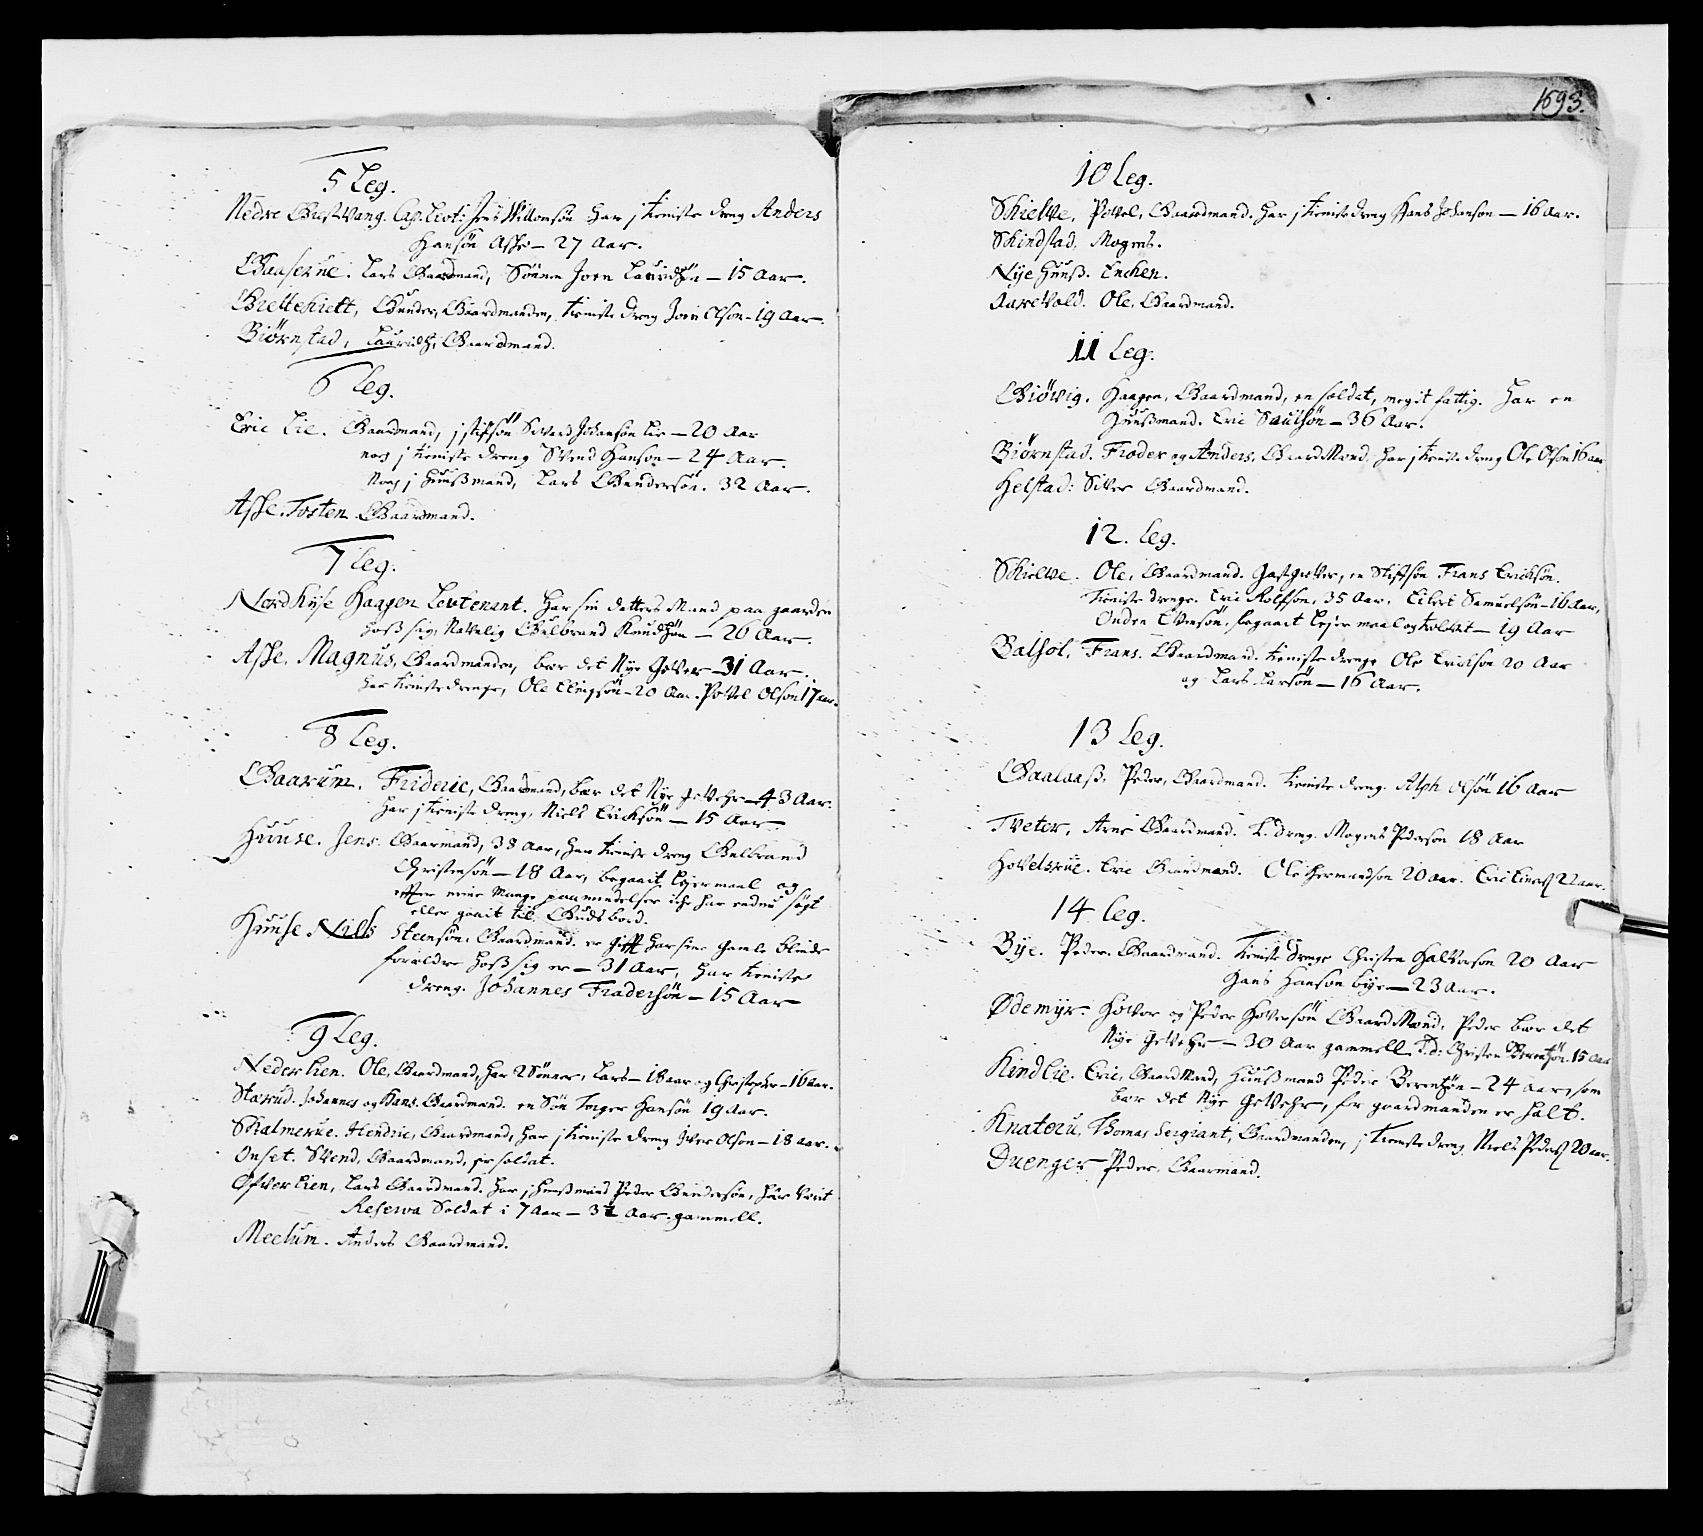 5 Leg.
Nedre Giestvang. Cap. Leut: Jens Willomsøn har j tieniste dreng Anders
Hansøn Asse – 27 Aar.
Gaaserue. Lars Gaardmand, Sønnen Joen Lauridsøn – 15 Aar.
Grettehiett, Gunder, Gaardmanden, tieniste dreng Joen Olson – 19 Aar.
Biørnstad, Lauridtz, Gaardmand.
6 Leg.
Eric Lie. Gaardmand, j stifsøn Siverd Johansøn Lie – 20 Aar
nog j tieniste dreng Svend Hanson – 24 Aar.
Nog j huußmand, Lars Gundersøn. 32 Aar.
Asse. Tosten Gaardmand.
7 Leg.
Nordhyse Haagen Leutenant. Har sin datters Mand paa gaarden
hoß sig, Navnlig Gulbrand Knudsøn – 26 Aar.
Asse. Magnus, Gaardmanden, bær det Nye Gever – 31 Aar.
har tieniste drenge, Ole Elingsøn – 20 Aar. Povel Olson 17 aar.
8 Leg.
Gaarum. Frideric, Gaardmand, bær det Nye gevehr – 43 Aar.
Har j tieniste dreng, Niels Erichsøn – 15 Aar
Huuse. Jens. Gaarmand, 38 Aar, har tieniste dreng Gulbrand
Christensøn – 18 Aar, begaait Leyermaal og
efter mine Mange paamindelser iche har endnu søgt
eller gaait til Guds bord.
Huuse Nills Steensøn. Gaardmand. er gifft har sine gamle blinde
forældre hoß sig er – 31 Aar, har tieniste
dreng. Johannes Fradersøn – 15 Aar
9 Leg.
Nederlien. Ole, Gaardmand, har 2 Sønner, Lars – 18 aar og Christopher – 16 aar.
Starud. Johannes og Hans. Gaardmænd. en Søn Torger Hansøn 19 Aar.
Skalmerue. Hendric, Gaardmand, har j tieniste dreng Iver Olson – 18 aar.
Onset. Svend, Gaardmand, er soldat.
Ofverlien, Lars Gaardmand. har j huußmand Peder Gundersøn, har verit
Reserva Soldat i 7 Aar – 32 Aar. gammell.
Meelum. Anders Gaardmand.
1693.
10 Leg.
Skielve, Povel, Gaardmand. har j tieniste dreng Hans Johanson – 16 Aar.
Skindstad, Mogens.
Nyehuuß. Enchen.
Aarevold. Ole, Gaardmand.
11 Leg.
Giøvig. Haagen, Gaardmand, en soldat, megit fattig. Har en
huußmand. Eric Saulsøn – 36 Aar.
Biørnstad. Frader og Anders, GaardMænd, har j tieniste dreng Ole Olson 16 aar
Helstad: Siver Gaardmand.
12. Leg.
Skielve. Ole, Gaardmand. Gastgiver, en Stifsøn Frans Ericksøn.
tieniste drenge. Eric Rolfson, 35 Aar. Eilert Samuelsøn – 16 Aar,
Onden Evensøn, begaait Lejermaal og tolvet – 19 Aar
Balsol. Frans. Gaardmand. tieniste drenge Ole Erickson 20 Aar
og Lars Larsøn – 16 Aar.
13 Leg.
Gaalaaß. Peder, Gaardmand. tieniste dreng. Alph Olsøn 16 Aar
Tveter, Arne Gaardmand. t. dreng. Mogens Pederson 18 Aar
Hovelsrue. Eric Gaardmand. Ole Hermandson 20 aar. Eric Einers 22 aar.
14 Leg.
Bye. Peder. Gaardmand. tieniste drenge Christen Halvorson 20 Aar
Hans Hanson bye – 23 Aar.
Ødemyr. Hover og Peder Hoversøn GaardMænd, Peder bær det
Nye Gevehr – 30 Aar gammell. T.d: Christen Berentsøn. 15 Aar
Kindlie. Eric, GaardMand, Huußmand Peder Berentsøn – 24 Aar, som
bær det Nye Gevehr, for gaardmanden er halt.
Knatoru, Thomas Sergiant, Gaardmanden, j tieniste dreng Niels Peders 20 aar.
Duenger Peder, Gaarmand.